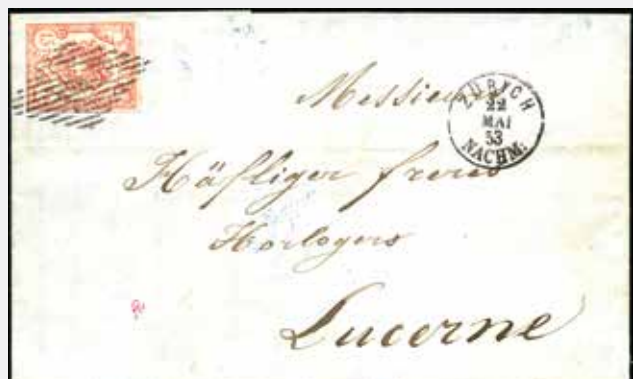 Messieurs
ZÜRICH
22
MAI
53
NACHM:
Häfliger freres
Horlogers
Lucerne